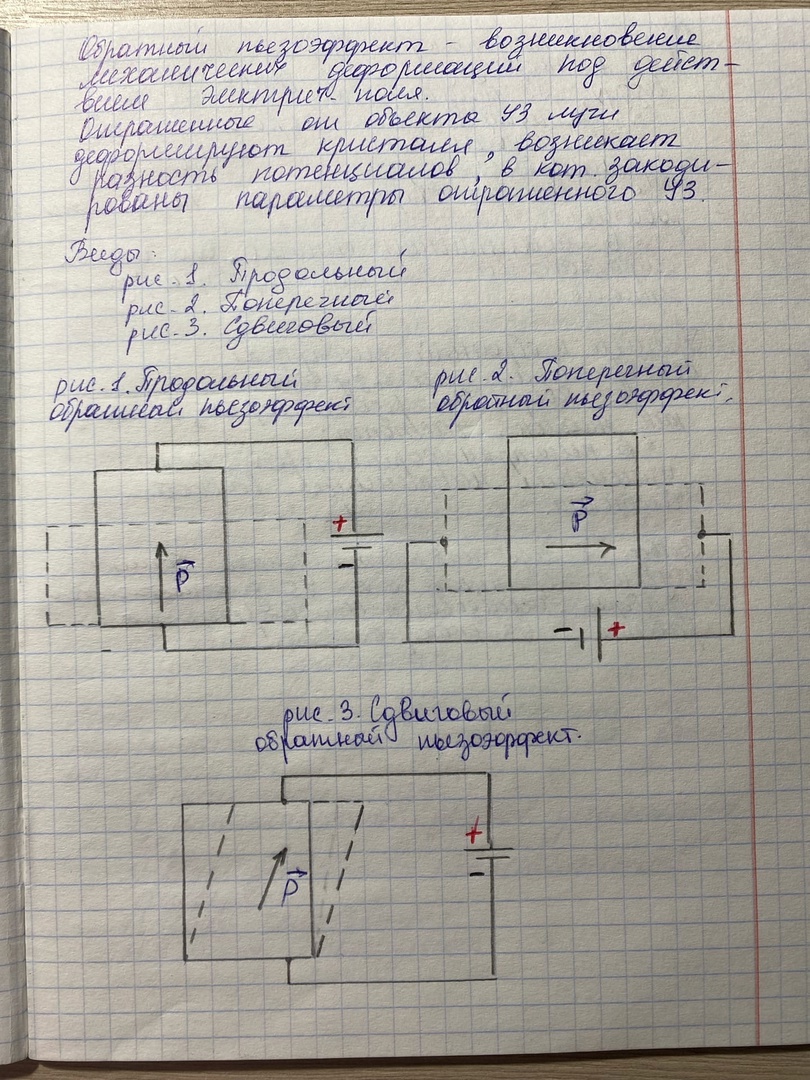 Обратный пьезоэффект - возникновение
механических деформаций под дейст-
вием электрич. поля.
Отраженные от объекта УЗ лучи
деформируют кристалл, возникает
разность потенциалов, в кот. закоди-
рованы параметры отраженного УЗ.
Виды:
рис. 1. Продольный
рис. 2. Поперечный
рис. 3. Сдвиговый
рис. 1. Продольный
обратный пьезоэффект
рис. 2. Поперечный
обратный пьезоэффект.
+
P
-
P
- +
рис. 3. Сдвиговый
обратный пьезоэффект.
+
P
-